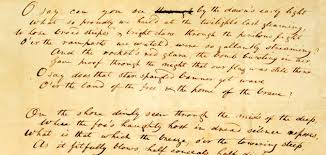 O say can you see by the dawn's early light
What so proudly we hail'd at the twilight's last gleaming,
Whose broad stripes & bright stars through the perilous fight
O'er the ramparts we watch'd, were so gallantly streaming?
And the rocket's red glare, the bomb bursting in air,
Gave proof through the night that our flag was still there
O say does that star spangled banner yet wave
O'er the land of the free & the home of the brave?
On the shore dimly seen through the mists of the deep,
Where the foe's haughty host in dread silence reposes,
What is that which the breeze, o'er the towering steep,
As it fitfully blows, half conceals, half